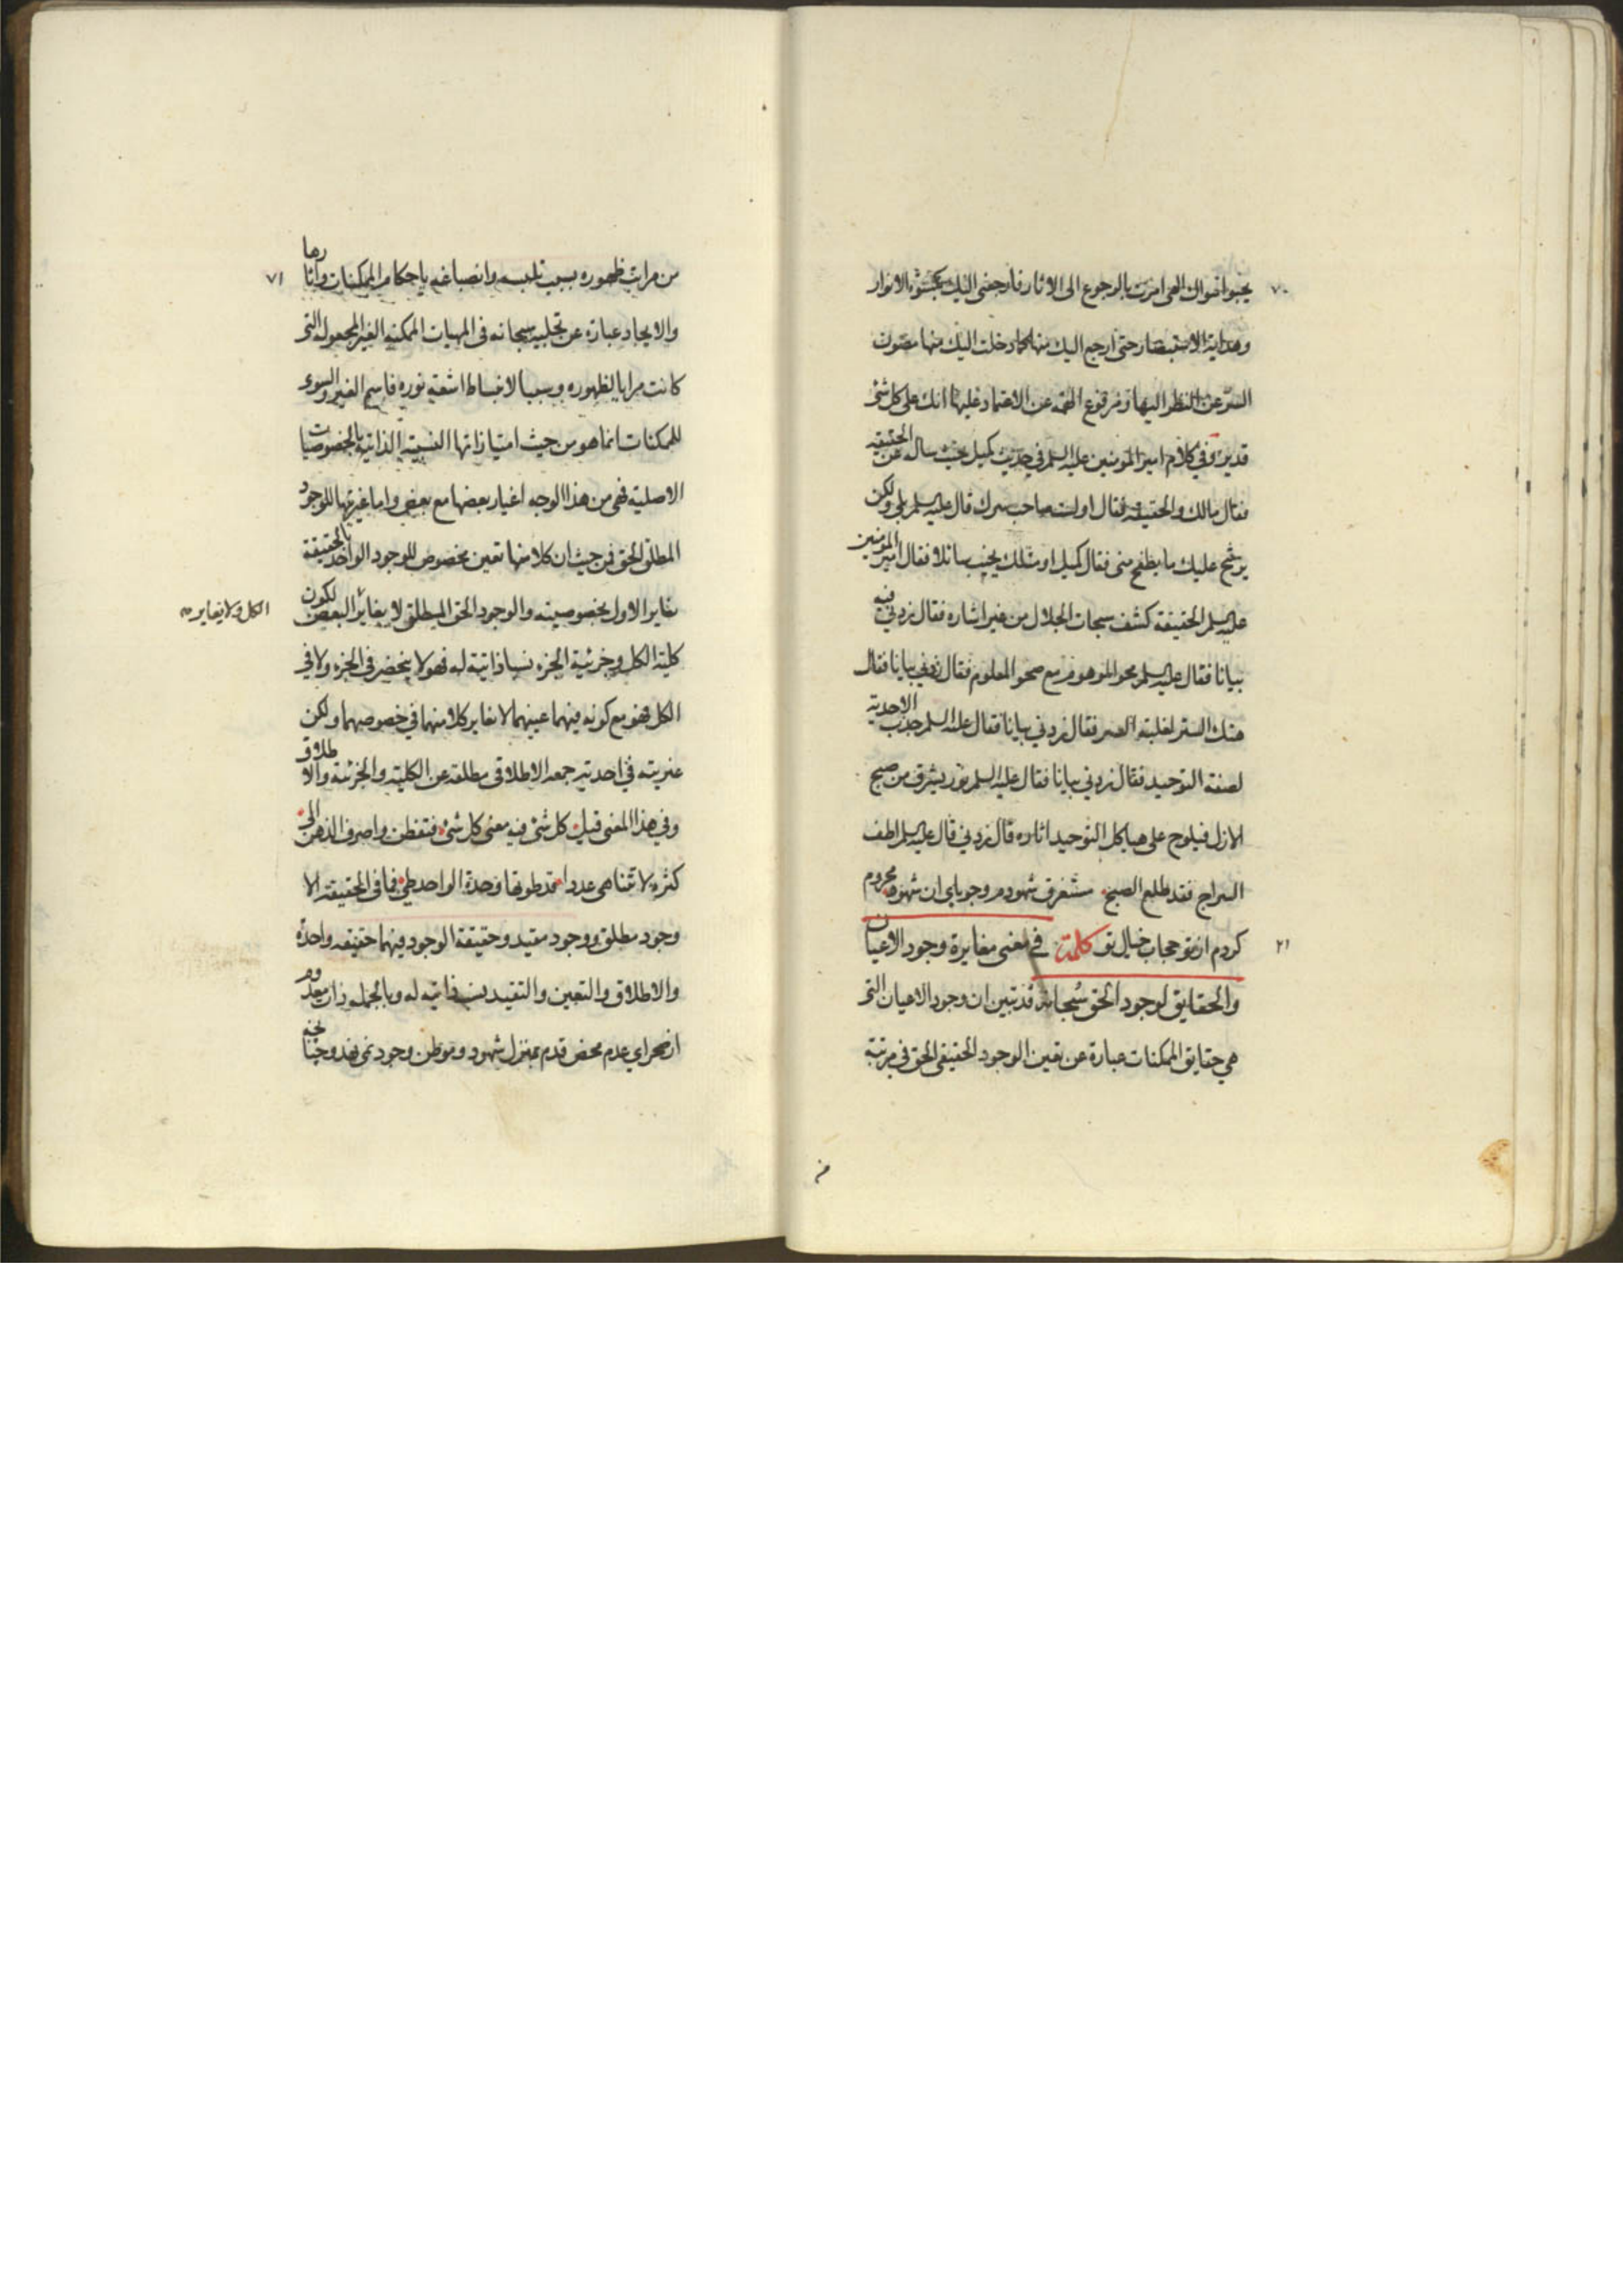 ٧٠
الهى امرت بالرجوع الى الاثار فارجعنى اليك بكسوة الانوار
وهداية الاستبصار حتى ارجع اليك منها كما دخلت اليك منها مصون
السر عن النظر اليها ومرفوع الهمة عن الاعتماد عليها انك على كل شئ
قدير وفي كلام امير المومنين عليه السلم في حديث كميل حيث ساله عن الحقيقه
فقال مالك والحقيقه فقال اولست صاحب سرك قال عليه السلم بلى ولكن
يرشح عليك ما يطفح منى فقال كميل او مثلك يخيب سائلا فقال امير المومنين
عليه السلم الحقيقة كشف سبحات الجلال من غير اشاره فقال زدني فيه
بيانا فقال عليه السلم محو الموهوم مع صحو المعلوم فقال زدني بيانا فقال
هتك الستر لغلبة السر فقال زدني بيانا فقال عليه السلم جذب الاحدية
لصفة التوحيد فقال زدني بيانا فقال عليه السلم نور يشرق من صبح
الازل فيلوح على هياكل التوحيد اثاره قال زدني قال عليه السلم اطف
السراج فقد طلع الصبح مستغرق شهودم وجوياي ان شهود محروم
كردم از تو حجاب خيال تو كلمة في معنى مغايرة وجود الاعيان
٢١
والحقايق لوجود الحق سبحانه قد تبين ان وجود الاعيان التى
هي حقايق الممكنات عبارة عن تعين الوجود الحقيقى الحق في مرتبة
من
٧١
من مراتب ظهوره بسبب تلبسه وانصباغه باحكام الممكنات واثارها
والايجاد عبارة عن تجليه سبحانه فى المهيات الممكنه الغير المجعوله التى
كانت مرايا لظهوره وسببا لانبساط اشعة نوره فاسم الغير والسوى
للممكنات انما هو من حيث امتيازاتها النسبية الذاتية بالخصوصيات
الاصلية فهى من هذا الوجه اغيار بعضها مع بعض واما غيريتها للوجود
المطلق الحق فمن حيث ان كلا منها تعين مخصوص للوجود الواحد بالحقيقة
يغاير الاول بخصوصيته والوجود الحق المطلق لا يغاير البعض لكون
الكل ولا يغاير
كلية الكل وجزئية الجزء نسبا ذاتية له فهو لا ينحصر فى الجزء ولا فى
الكل فهو مع كونه فيهما عينهما لا يغاير كلا منهما في خصوصهما ولكن
غيريته في احدية جمعه الاطلاقى مطلقة عن الكلية والجزئية والاطلاق
وفي هذا المعنى قيل كل شئ فيه معنى كل شئ فتفطن واصرف الذهن الى
كثرة لا تتناهى عددا قد طوتها وحدة الواحد طى فما فى الحقيقة الا
وجود مطلق ووجود مقيد وحقيقة الوجود فيهما حقيقه واحدة
والاطلاق والتعين والتقييد نسب ذاتيه له وبالجمله ذات معدوم
از صحراي عدم محض قدم بمنزل شهود وموطن وجود نمى نهد وچنانچه